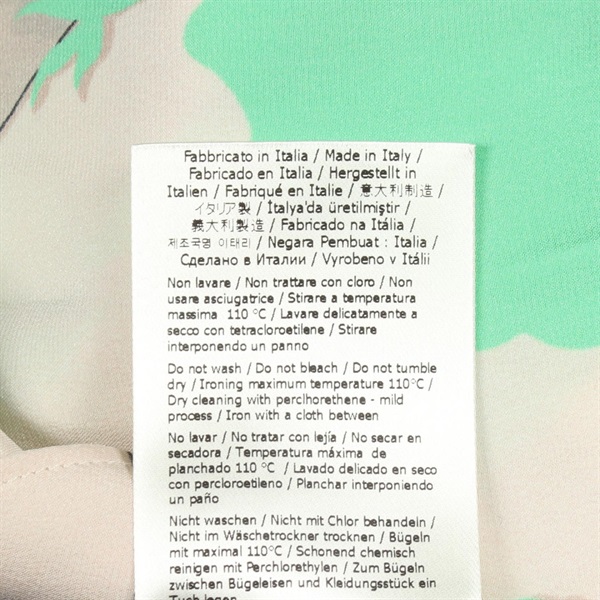 Fabbricato in Italia / Made in Italy /
Fabricado en Italia / Hergestellt in
Italien / Fabriqué en Italie / 意大利制造 /
イタリア製 / İtalya'da üretilmiştir /
義大利製造 / Fabricado na Itália /
제조국명 이태리 / Negara Pembuat : Italia /
Сделано в Италии / Vyrobeno v Itálii
Non lavare / Non trattare con cloro / Non
usare asciugatrice / Stirare a temperatura
massima 110 °C / Lavare delicatamente a
secco con tetracloroetilene / Stirare
interponendo un panno
Do not wash / Do not bleach / Do not tumble
dry / Ironing maximum temperature 110°C /
Dry cleaning with perclhorethene - mild
process / Iron with a cloth between
No lavar / No tratar con lejía / No secar en
secadora / Temperatura máxima de
planchado 110 °C / Lavado delicado en seco
con percloroetileno / Planchar interponiendo
un paño
Nicht waschen / Nicht mit Chlor behandeln /
Nicht im Wäschetrockner trocknen / Bügeln
mit maximal 110°C / Schonend chemisch
reinigen mit Perchlorethylen / Zum Bügeln
zwischen Bügeleisen und Kleidungsstück ein
Tuch legen